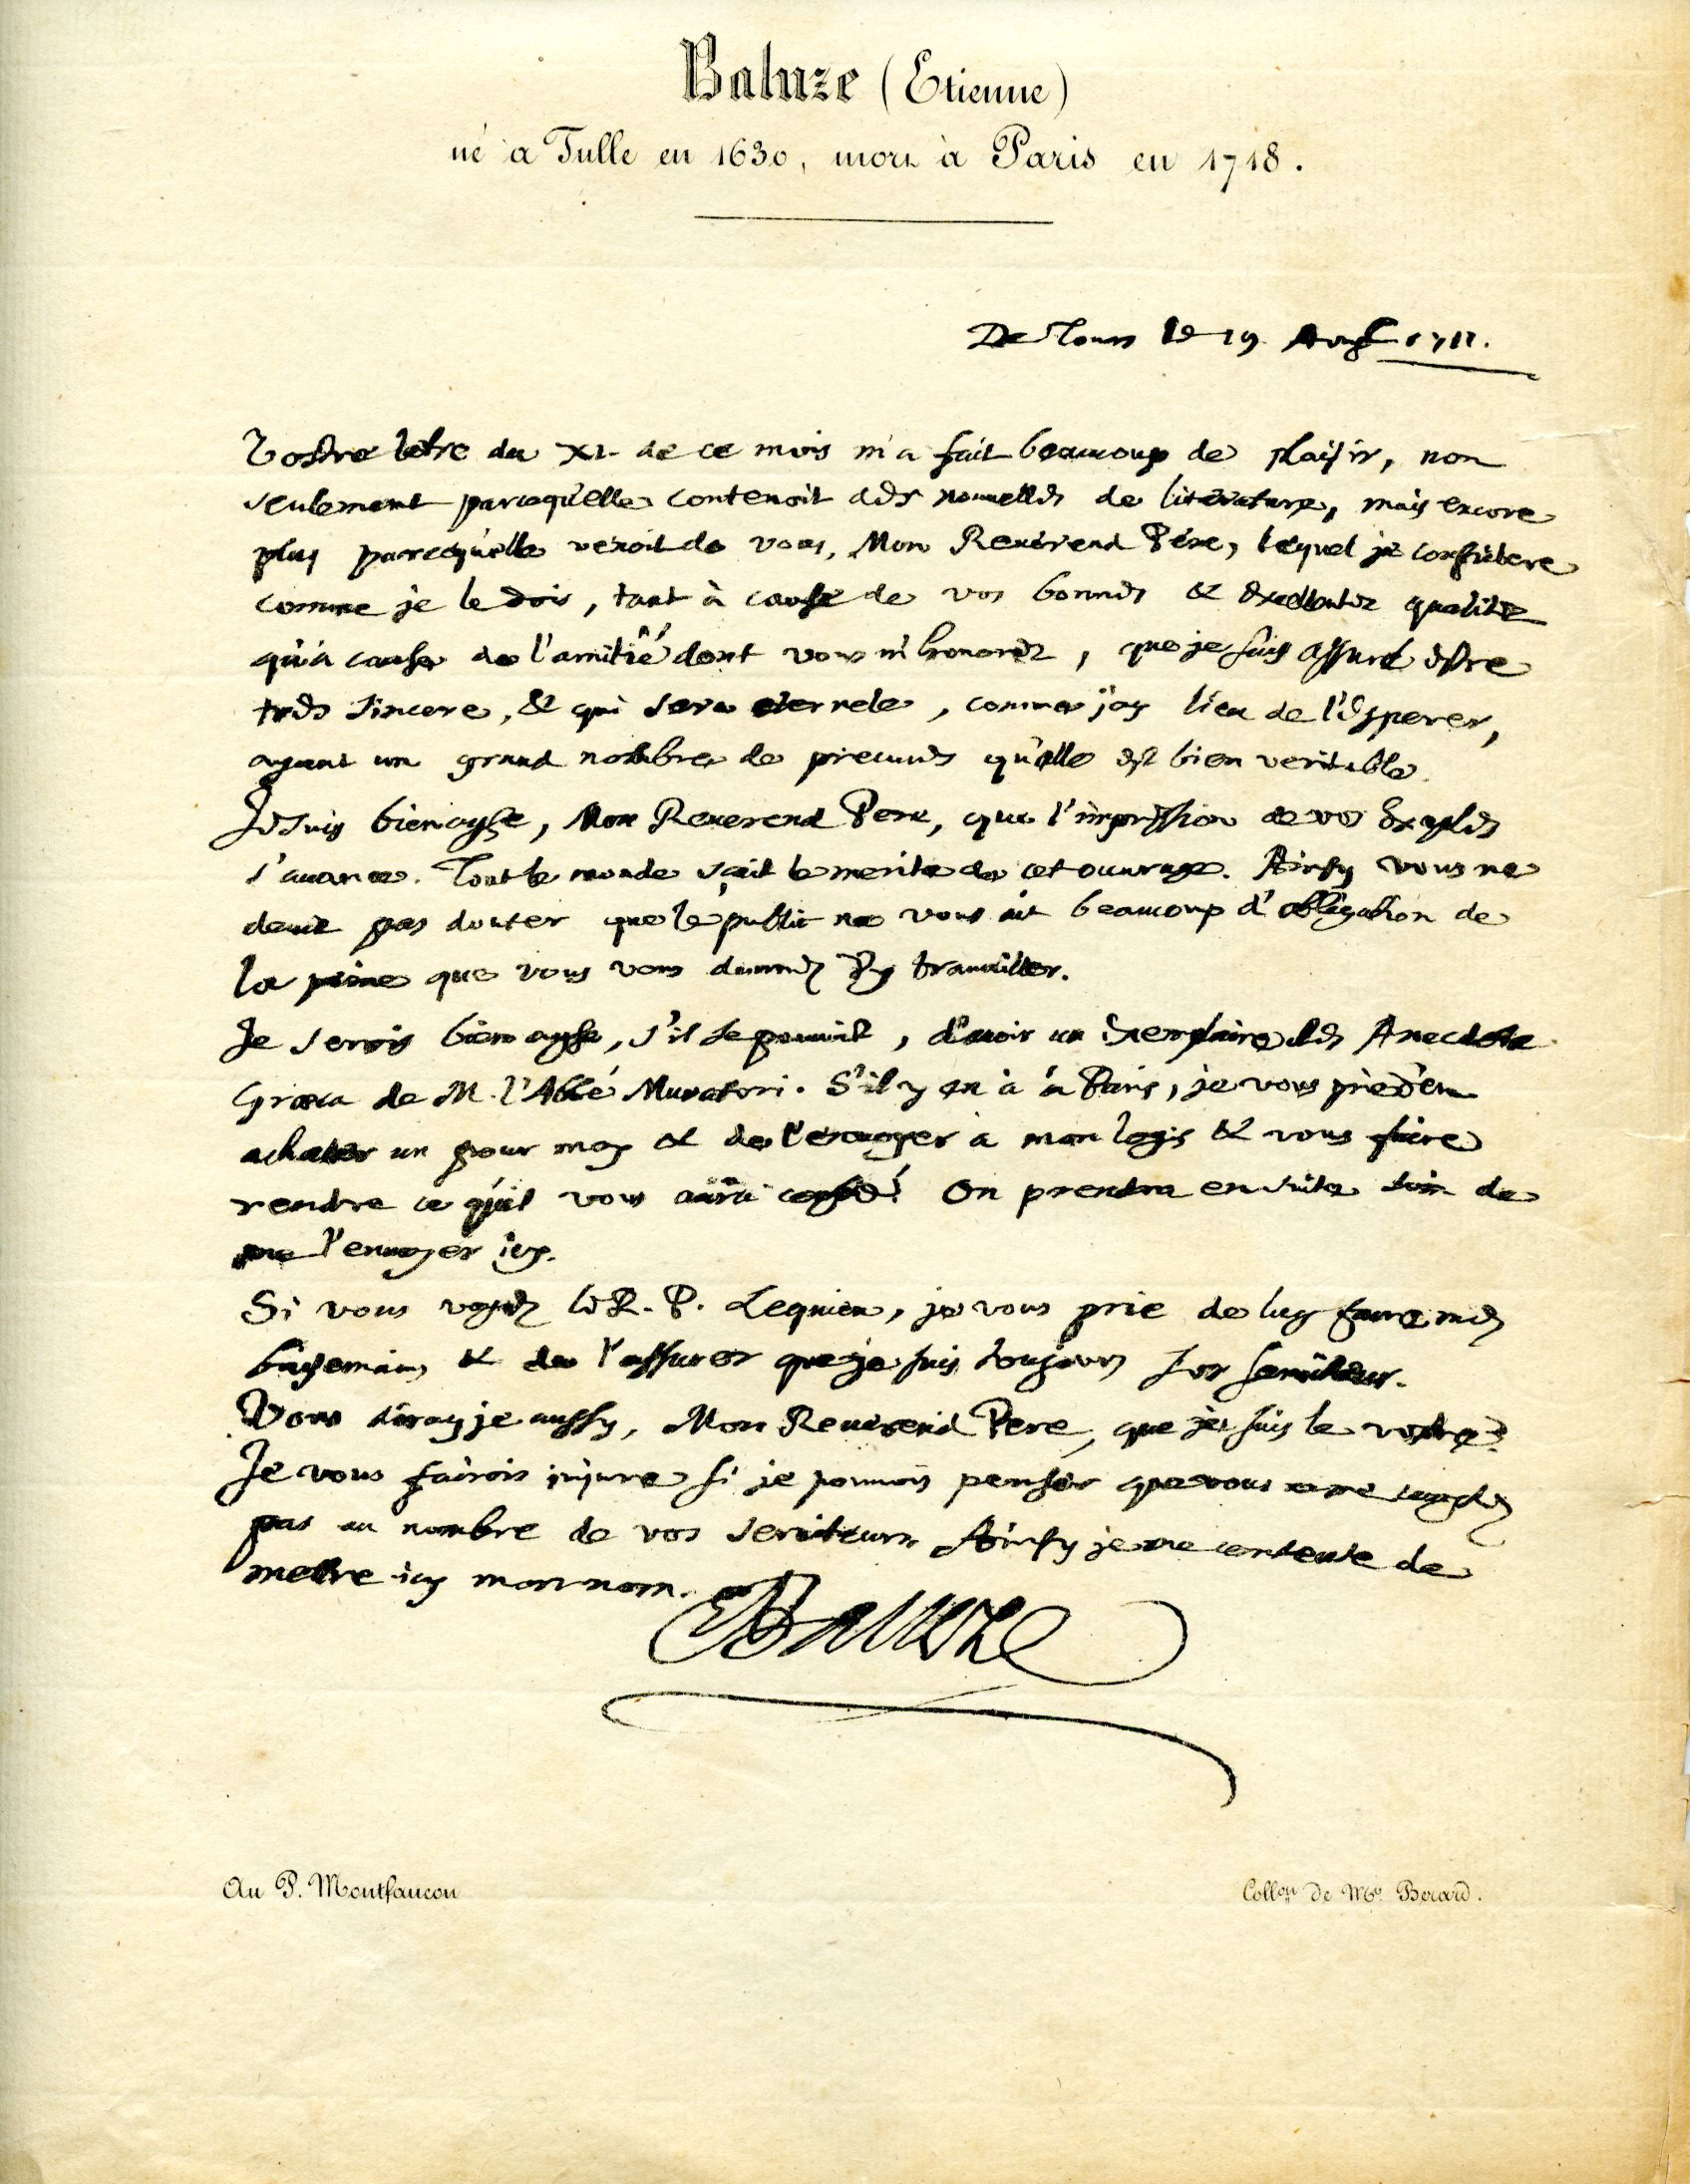 Baluze (Etienne)
né à Tulle en 1630, mort à Paris en 1718.
De Tours le 19 Aoust 1711.
Vostre letre du XI. de ce mois m'a fait beaucoup de plaisir, non
seulement parcequ'elle contenoit des nouvelles de literature, mais encore
plus parcequ'elle venoit de vous, Mon Reverend Pére, lequel je considere
comme je le dois, tant à cause de vos bonnes & excellentes qualitez
qu'à cause de l'amitié dont vous m'honorez, que je suis assuré estre
tres sincere, & qui sera eternele, comme j'ay lieu de l'esperer,
ayant un grand nombre de preuues qu'elle est bien veritable.
Je suis bien ayse, Mon Reuerend Pere, que l'impression de vos Exaples
s'auance. Tout le monde sçait le merite de cet ouurage. Ainsy vous ne
deuez pas douter que le public ne vous ait beaucoup d'obligation de
la peine que vous vous donnez d'y trauailler.
Je serois bien ayse, s'il se pouuoit, d'auoir un exemplaire des Anecdota
Græca de M. l'Abbé Muratori. S'il y en à à Paris, je vous prie d'en
achater un pour moy & de l'enuoyer à mon logis & vous faire
rendre ce qu'il vous aura cousté. On prendra ensuite soin de
me l'enuoyer icy.
Si vous voyez le R. P. Lequien, je vous prie de luy faire mes
baysemains & de l'assurer que je suis toujours son seruiteur.
Vous diray je aussy, Mon Reuerend Pere, que je suis le vostre?
Je vous fairois injure si je pouuois penser que vous ne me contez
pas au nombre de vos seruiteurs. Ainsy je me contente de
mettre icy mon nom.
EBaluze
Au P. Montfaucon
Coll.on de Mr. Berard.